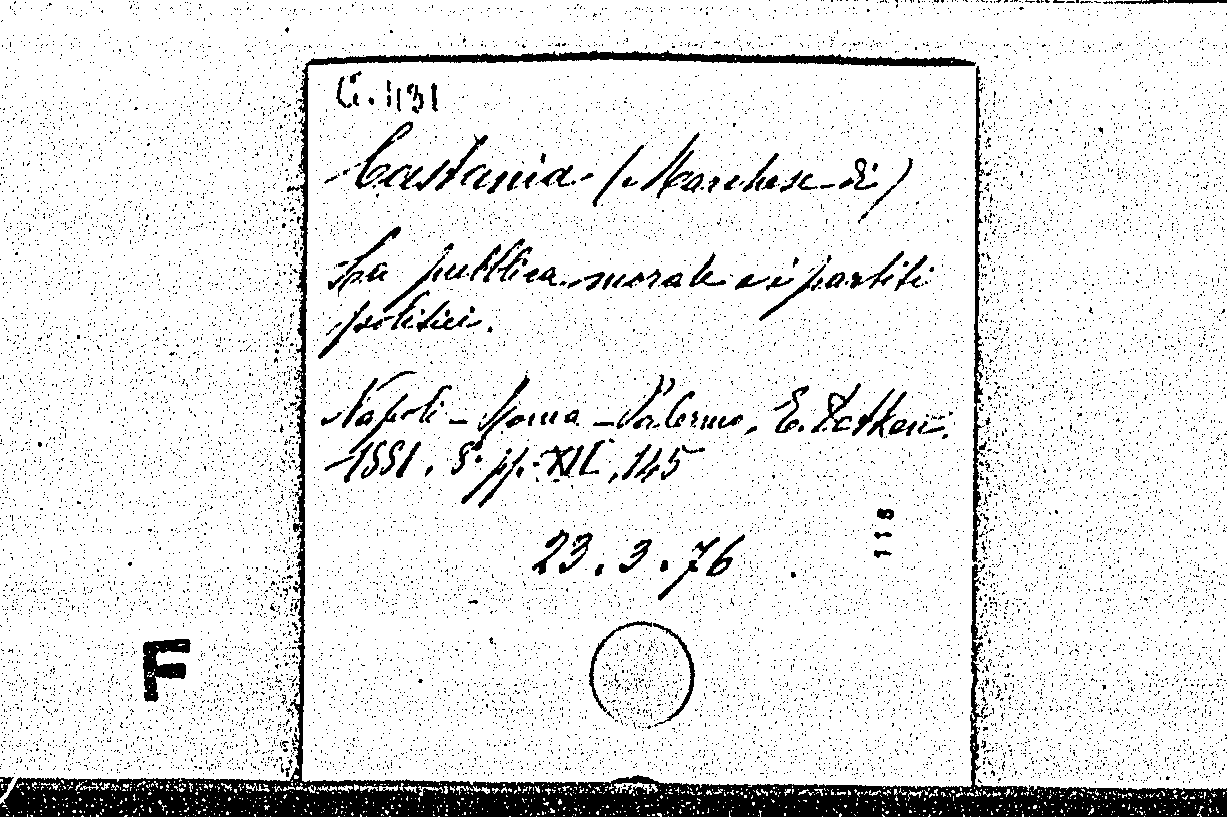 G. 1131
Castania (Marchese di)
La pubblica morale e i partiti
politici.
Napoli - Roma - Palermo, E. Detken.
1881. 8° pp. XII, 145
23.3.76
118
F